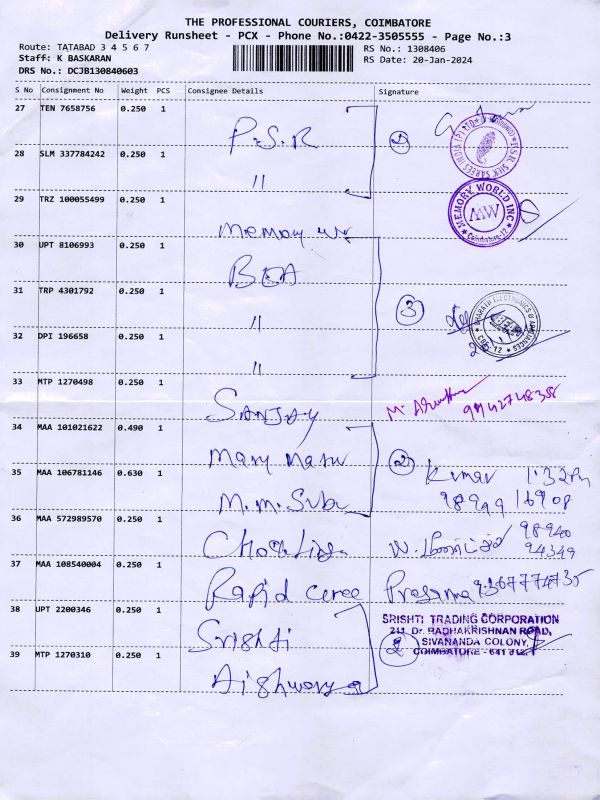 THE PROFESSIONAL COURIERS, COIMBATORE
Delivery Runsheet - PCX - Phone No.:0422-3505555 - Page No.:3
Route: TATABAD 3 4 5 6 7
RS No.: 1308406
Staff: K BASKARAN
RS Date: 20-Jan-2024
DRS No.: DCJB130840603
S No Consignment No Weight PCS Consignee Details Signature
27 TEN 7658756 0.250 1 P.S.R 2
28 SLM 337784242 0.250 1 "
29 TRZ 100055499 0.250 1 memory
MEMORY WORLD INC
MW
Coimbatore-12
30 UPT 8106993 0.250 1 BEA
31 TRP 4301792 0.250 1 " 3
BHARATH ELECTRONICS & APPLIANCES
32 DPI 196658 0.250 1 "
33 MTP 1270498 0.250 1 SANJAY
34 MAA 101021622 0.490 1 Mary 2 Kumar 1:32 Pm
35 MAA 106781146 0.630 1 M.M. 98949 16908
36 MAA 572989570 0.250 1 98940
94349
37 MAA 108540004 0.250 1 Rapid Prasanna 9367774735
38 UPT 2200346 0.250 1 Srishti
SRISHTI TRADING CORPORATION
211, Dr. RADHAKRISHNAN ROAD,
SIVANANDA COLONY,
COIMBATORE - 641 012.
2
39 MTP 1270310 0.250 1 Aishwarya